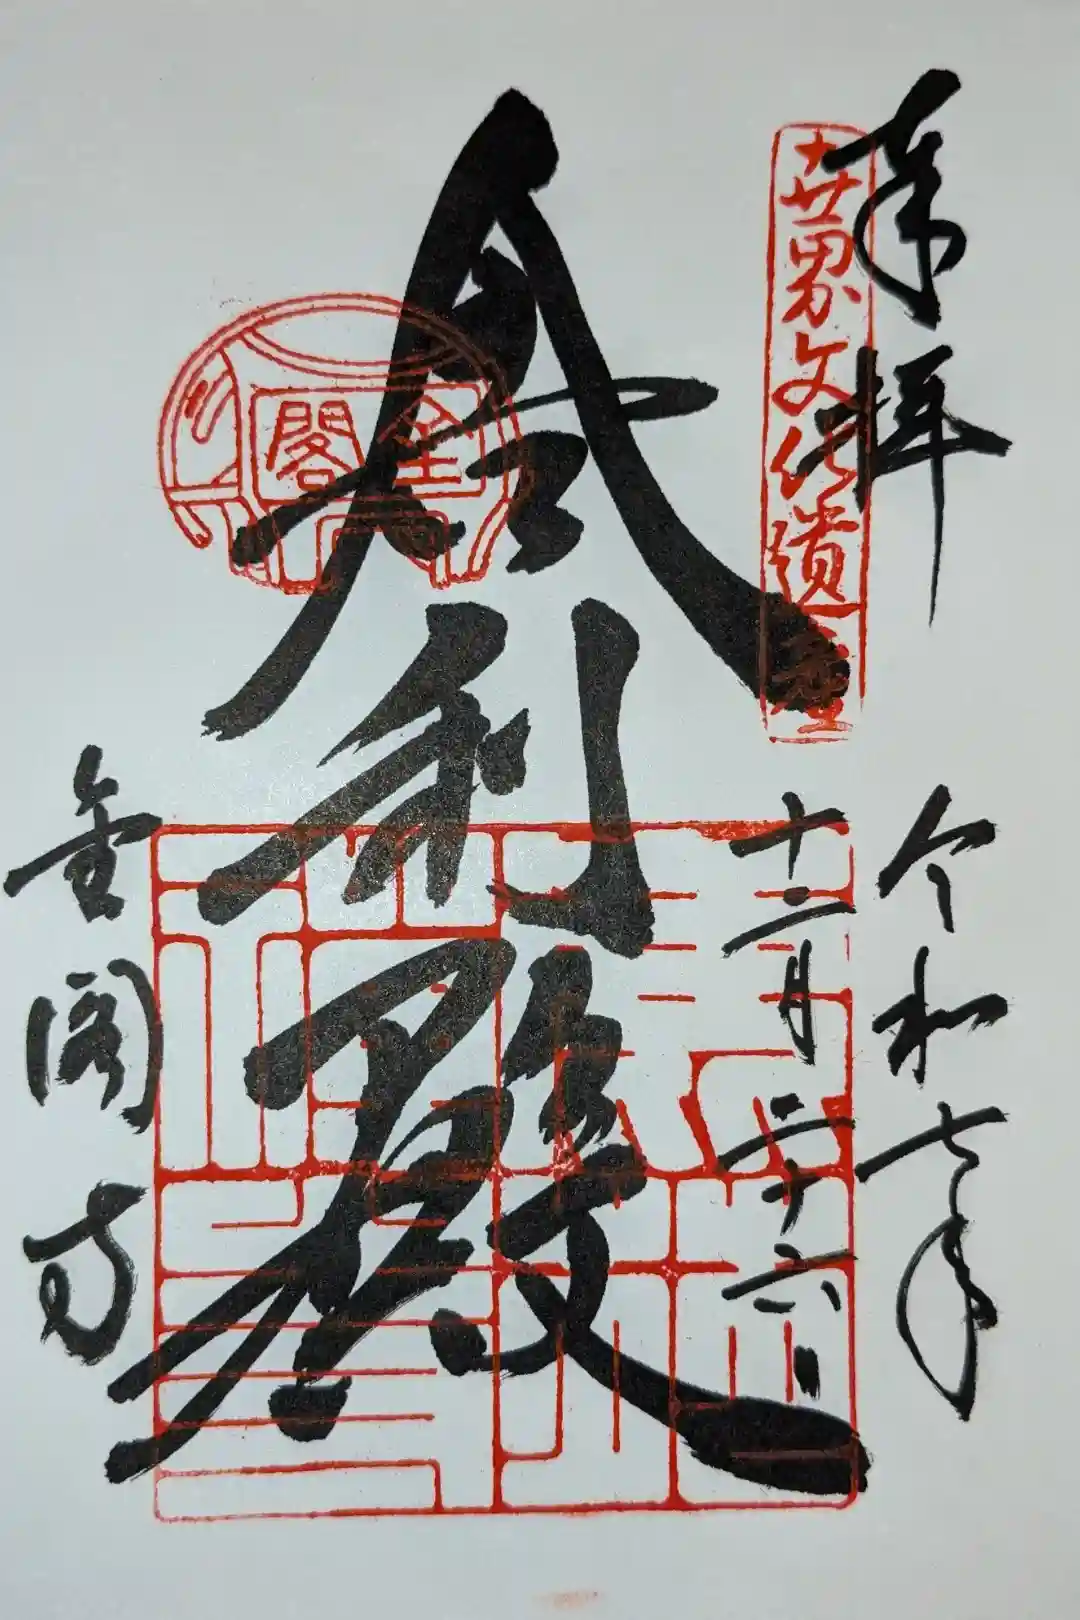 奉拝
世界文化遺産
令和七年
十二月二十六日
舎利殿
金閣
金閣寺